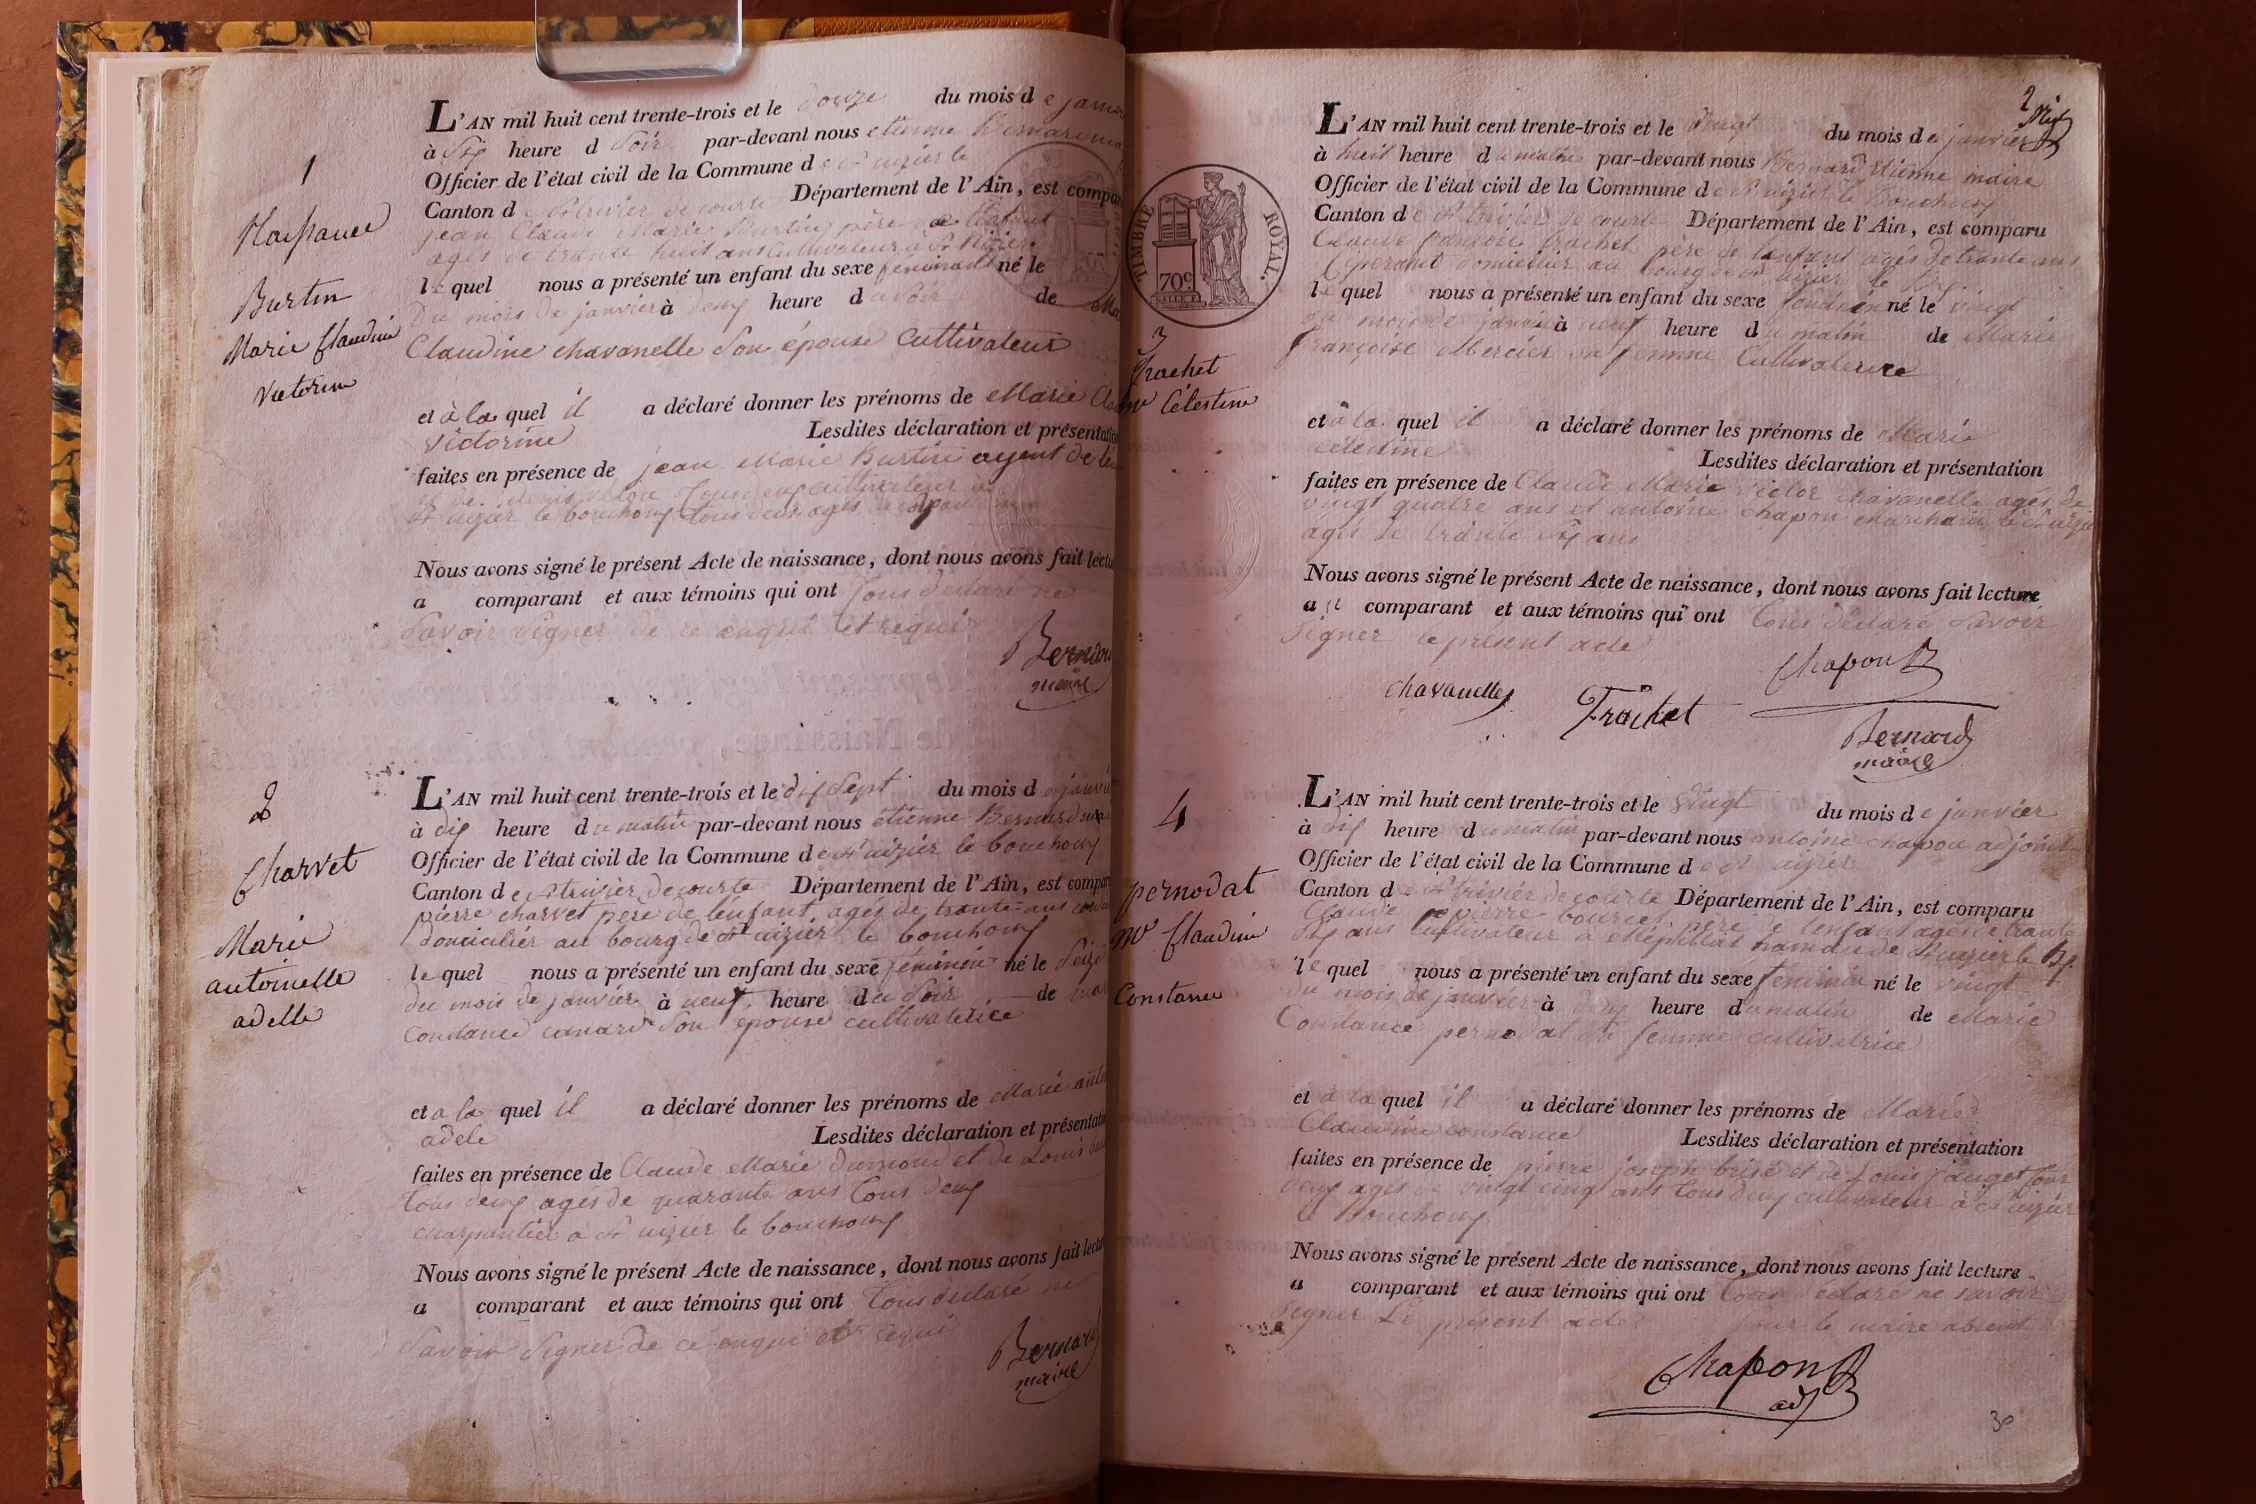 1
Naissance
Burtin
Marie Claudine
Victorine
L'AN mil huit cent trente-trois et le douze du mois de janvier
à six heure d soir par-devant nous etienne Bernard maire
Officier de l'état civil de la Commune de St nizier le
Canton de St trivier de courte Département de l'Ain, est comparu
jean Claude Marie Burtin père de l'enfant
agés de trante huit ans Cultivateur à St Nizier
le quel nous a présenté un enfant du sexe feminin né le
du mois de janvier à deux heure du soir de Marie
Claudine chavanelle son épouse Cultivateur
et à la quel il a déclaré donner les prénoms de Marie
victorine Lesdites déclaration et présentation
faites en présence de jean Marie Burtin
St nizier le bouchoux tous deux agés de
Nous avons signé le présent Acte de naissance, dont nous avons fait lecture
a comparant et aux témoins qui ont tous déclaré ne
savoir signer de ce enquit et requi
Bernard
maire
2
Charvet
Marie
antoinette
adelle
L'AN mil huit cent trente-trois et le dix sept du mois de janvier
à dix heure du matin par-devant nous etienne Bernard maire
Officier de l'état civil de la Commune de St nizier le bouchoux
Canton de St trivier de courte Département de l'Ain, est comparu
pierre charvet père de l'enfant agés de trante ans
domicilier au bourg de St nizier le bouchoux
le quel nous a présenté un enfant du sexe féminin né le seize
du mois de janvier à neuf heure du soir de
Constance canard son épouse cultivaterice
et a la quel il a déclaré donner les prénoms de Marie
adele Lesdites déclaration et présentation
faites en présence de Claude Marie dumond et de Louis
tous deux agés de quarante ans tous deux
charpentier a St nizier le bouchoux
Nous avons signé le présent Acte de naissance, dont nous avons fait lecture
a comparant et aux témoins qui ont tous déclaré ne
savoir signer de ce enqui et requi
Bernard
maire
2
TIMBRE ROYAL.
70c
3
frachet
me Célestine
L'AN mil huit cent trente-trois et le vingt du mois de janvier
à huit heure du matin par-devant nous Bernard etienne maire
Officier de l'état civil de la Commune de St nizier le Bouchoux
Canton de St trivier de courte Département de l'Ain, est comparu
Claude françois frachet père de l'enfant agés de trante ans
domicilier au bourg de St nizier le
le quel nous a présenté un enfant du sexe feminin né le vingt
du mois de janvier à neuf heure du matin de Marie
françoise Mercier sa femme Cultivaterice
et a la quel il a déclaré donner les prénoms de Marie
celestine Lesdites déclaration et présentation
faites en présence de Claude Marie victor chavanelle agés de
vingt quatre ans et antoine chapon marchand
agés de trante six ans
Nous avons signé le présent Acte de naissance, dont nous avons fait lecture
a comparant et aux témoins qui ont tous déclaré savoir
signer le présent acte
Chapon
chavanelle
Frachet
Bernard
maire
4
pernodat
me Claudine
Constance
L'AN mil huit cent trente-trois et le vingt du mois de janvier
à dix heure du matin par-devant nous antoine chapon adjoint
Officier de l'état civil de la Commune de St nizier
Canton de St trivier de courte Département de l'Ain, est comparu
Claude pierre père de l'enfant agés de trante
six ans Cultivateur a hamau de St nizier le
le quel nous a présenté un enfant du sexe feminin né le vingt
du mois de janvier à deux heure du matin de Marie
Constance pernodat sa femme cultivatrice
et a la quel il a déclaré donner les prénoms de Marie
Claudine constance Lesdites déclaration et présentation
faites en présence de pierre joseph et de Louis tous
deux agés de vingt cinq ans tous deux cultivateur à St nizier
le Bouchoux
Nous avons signé le présent Acte de naissance, dont nous avons fait lecture
a comparant et aux témoins qui ont tous déclaré ne savoir
signer Le présent acte pour le maire absent
Chapon
adj